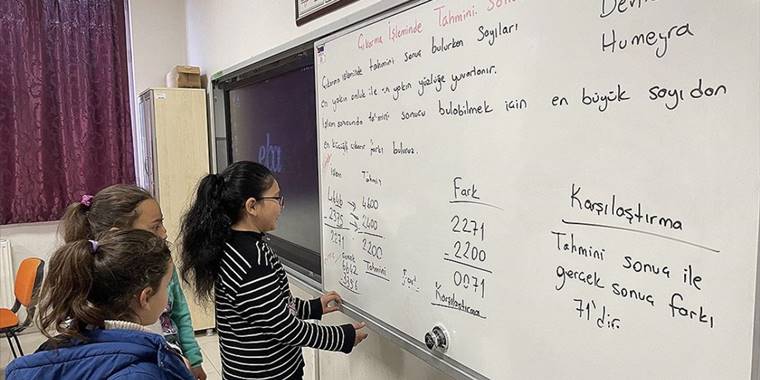 Çıkarma İşleminde Tahmini Sonu
Çıkarma işleminde tahmini sonuç bulurken sayıları
en yakın onluk ile en yakın yüzlüğe yuvarlanır.
İşlem sonucunda tahmini sonucu bulabilmek için en büyük sayıdan
en küçüğü çıkarır farkı buluruz.
Humeyra
İşlem Tahmin
4646 → 4600
2375 → 2400
2271 2200
Tahmini
Örnek
Fark
2271
2200
0071
Karşılaştırma
Karşılaştırma
Tahmini sonuç ile
gerçek sonuç farkı
71'dir.
eba